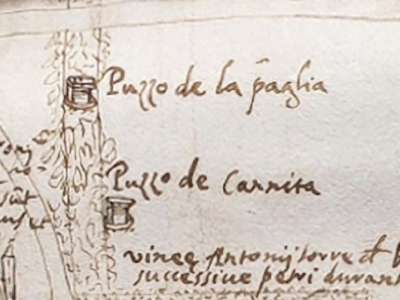 Puzzo de la paglia
Puzzo de Carnita
vinee Antonij torre
successive petri durant